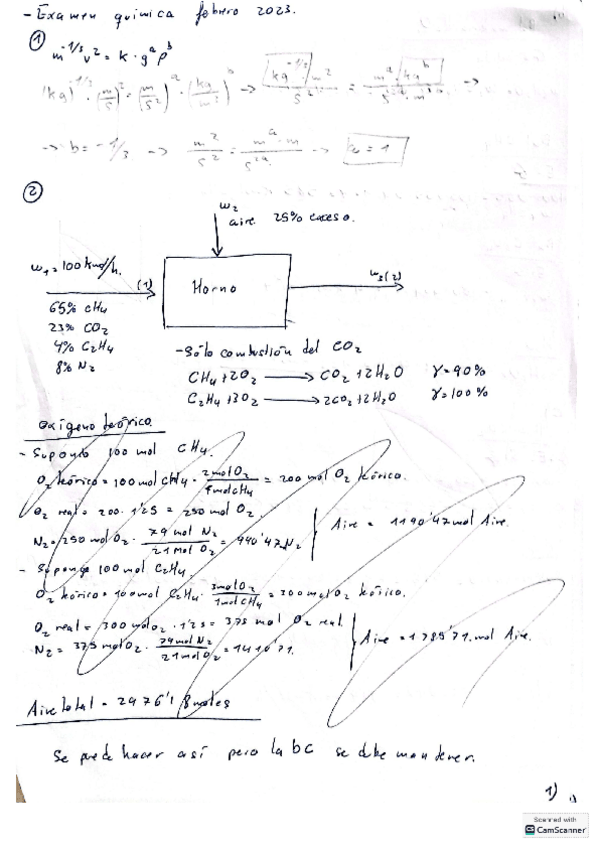 - Examen química febrero 2023.
①
m^-1/3 v² = k · g^a ρ^b
(kg)^-1/3 · (m/s)² = (m/s²)^a · (kg/m³)^b → kg^-1/3 m²/s² = m^a · kg^b / →
→ b = -1/3 → m²/s² = m^a · m / s^2a → a = 1
②
w₂
aire 25% exceso.
w₁ = 100 kmol/h.
(1)
Horno
w₃ (2)
65% CH₄
23% CO₂
4% C₂H₄
8% N₂
- Sólo combustión del CO₂
CH₄ + 2O₂ → CO₂ + 2H₂O γ = 90%
C₂H₄ + 3O₂ → 2CO₂ + 2H₂O γ = 100%
Oxígeno teórico.
- Supongo 100 mol CH₄.
O₂ teórico = 100 mol CH₄ · 2 mol O₂ / 1 mol CH₄ = 200 mol O₂ teórico.
O₂ real = 200 · 1'25 = 250 mol O₂.
N₂ = 250 mol O₂ · 79 mol N₂ / 21 mol O₂ = 940'47 N₂
Aire = 1190'47 mol Aire.
- Supongo 100 mol C₂H₄.
O₂ teórico = 100 mol C₂H₄ · 3 mol O₂ / 1 mol CH₄ = 300 mol O₂ teórico.
O₂ real = 300 mol O₂ · 1'25 = 375 mol O₂ real.
N₂ = 375 mol O₂ · 79 mol N₂ / 21 mol O₂ = 1410'71.
Aire = 1785'71 mol Aire.
Aire total = 2976'18 moles
Se puede hacer así pero la bc se debe mantener.
1)
Scanned with
CamScanner